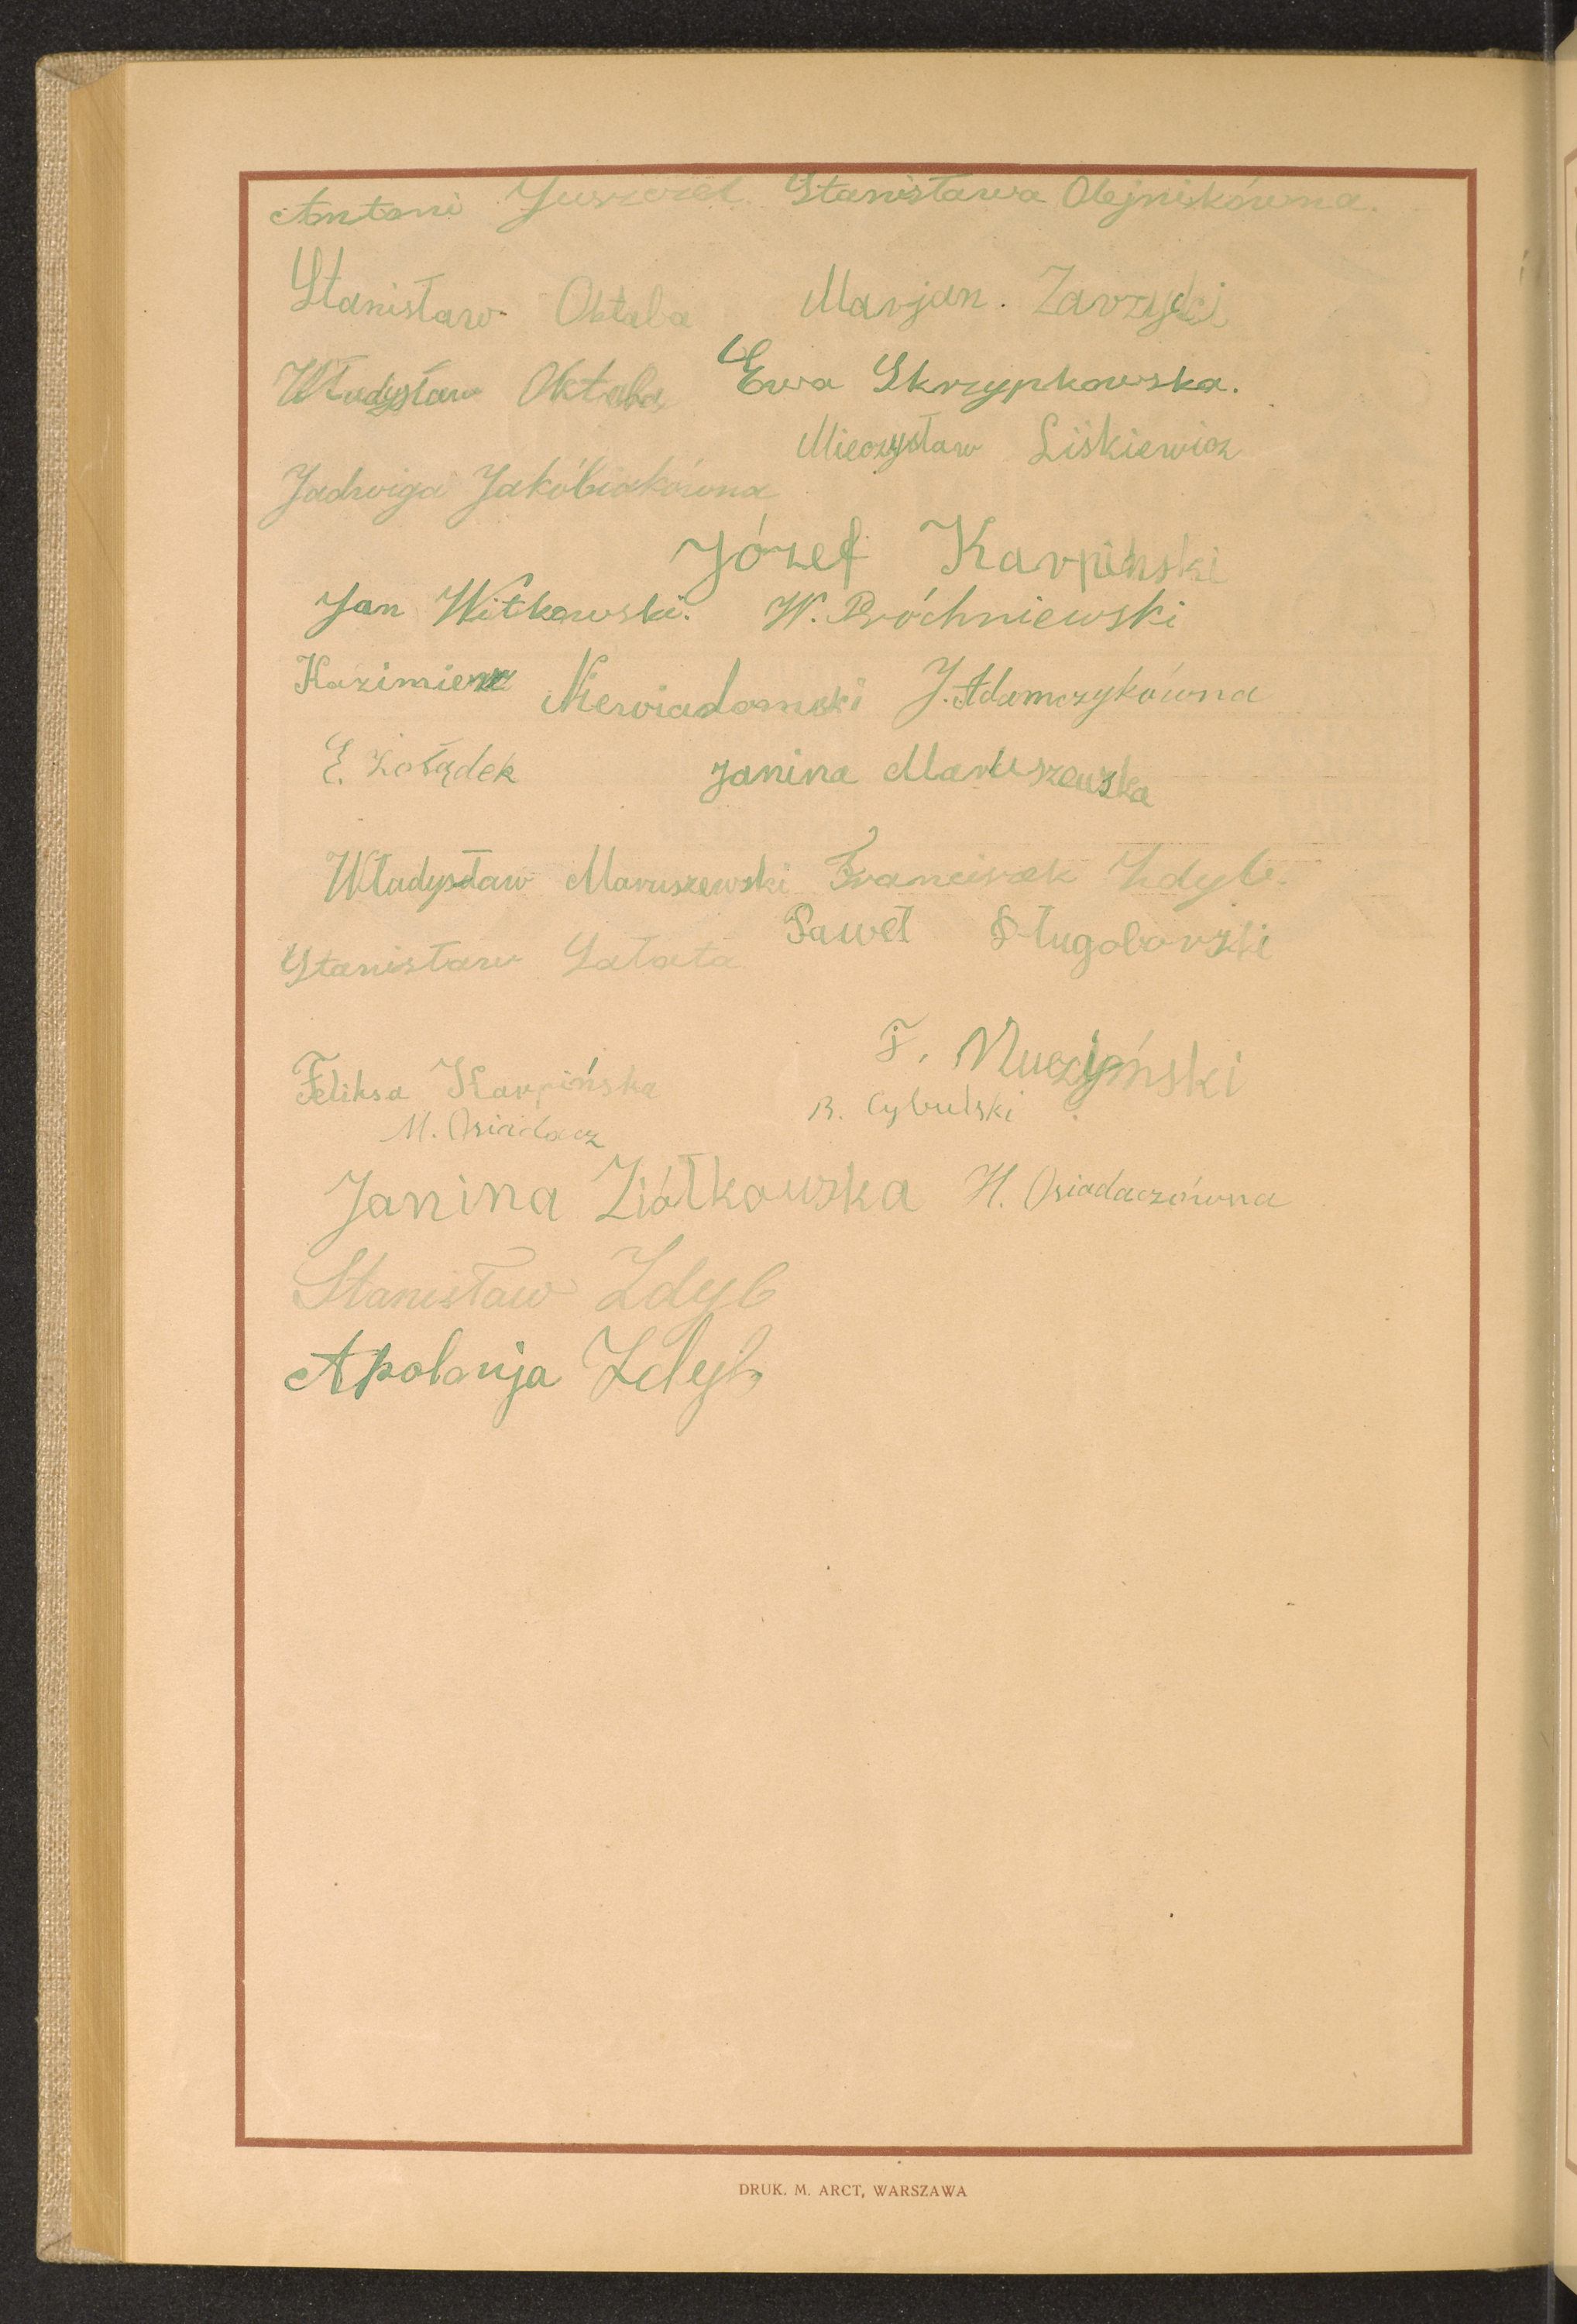 Antoni Juszczel. Stanisława Olejnikówna.
Stanisław Oktaba Marjan. Zarzycki
Władysław Oktaba Ewa Skrzypkowska.
Mieczysław Liśkiewicz
Jadwiga Jakóbiakówna
Józef Karpiński
Jan Witkowski. W. Próchniewski
Kazimierz Niewiadomski J. Adamczykówna
E. Żołądek Janina Maruszewska
Władysław Maruszewski Franciszek Zdyb.
Paweł Długoborski
Stanisław Sałata
F. Muczyński
Feliksa Karpińska
B. Cybulski
M. Osiadacz
Janina Ziółkowska H. Osiadaczówna
Stanisław Zdyb
Apolonja Zdyb
DRUK. M. ARCT, WARSZAWA